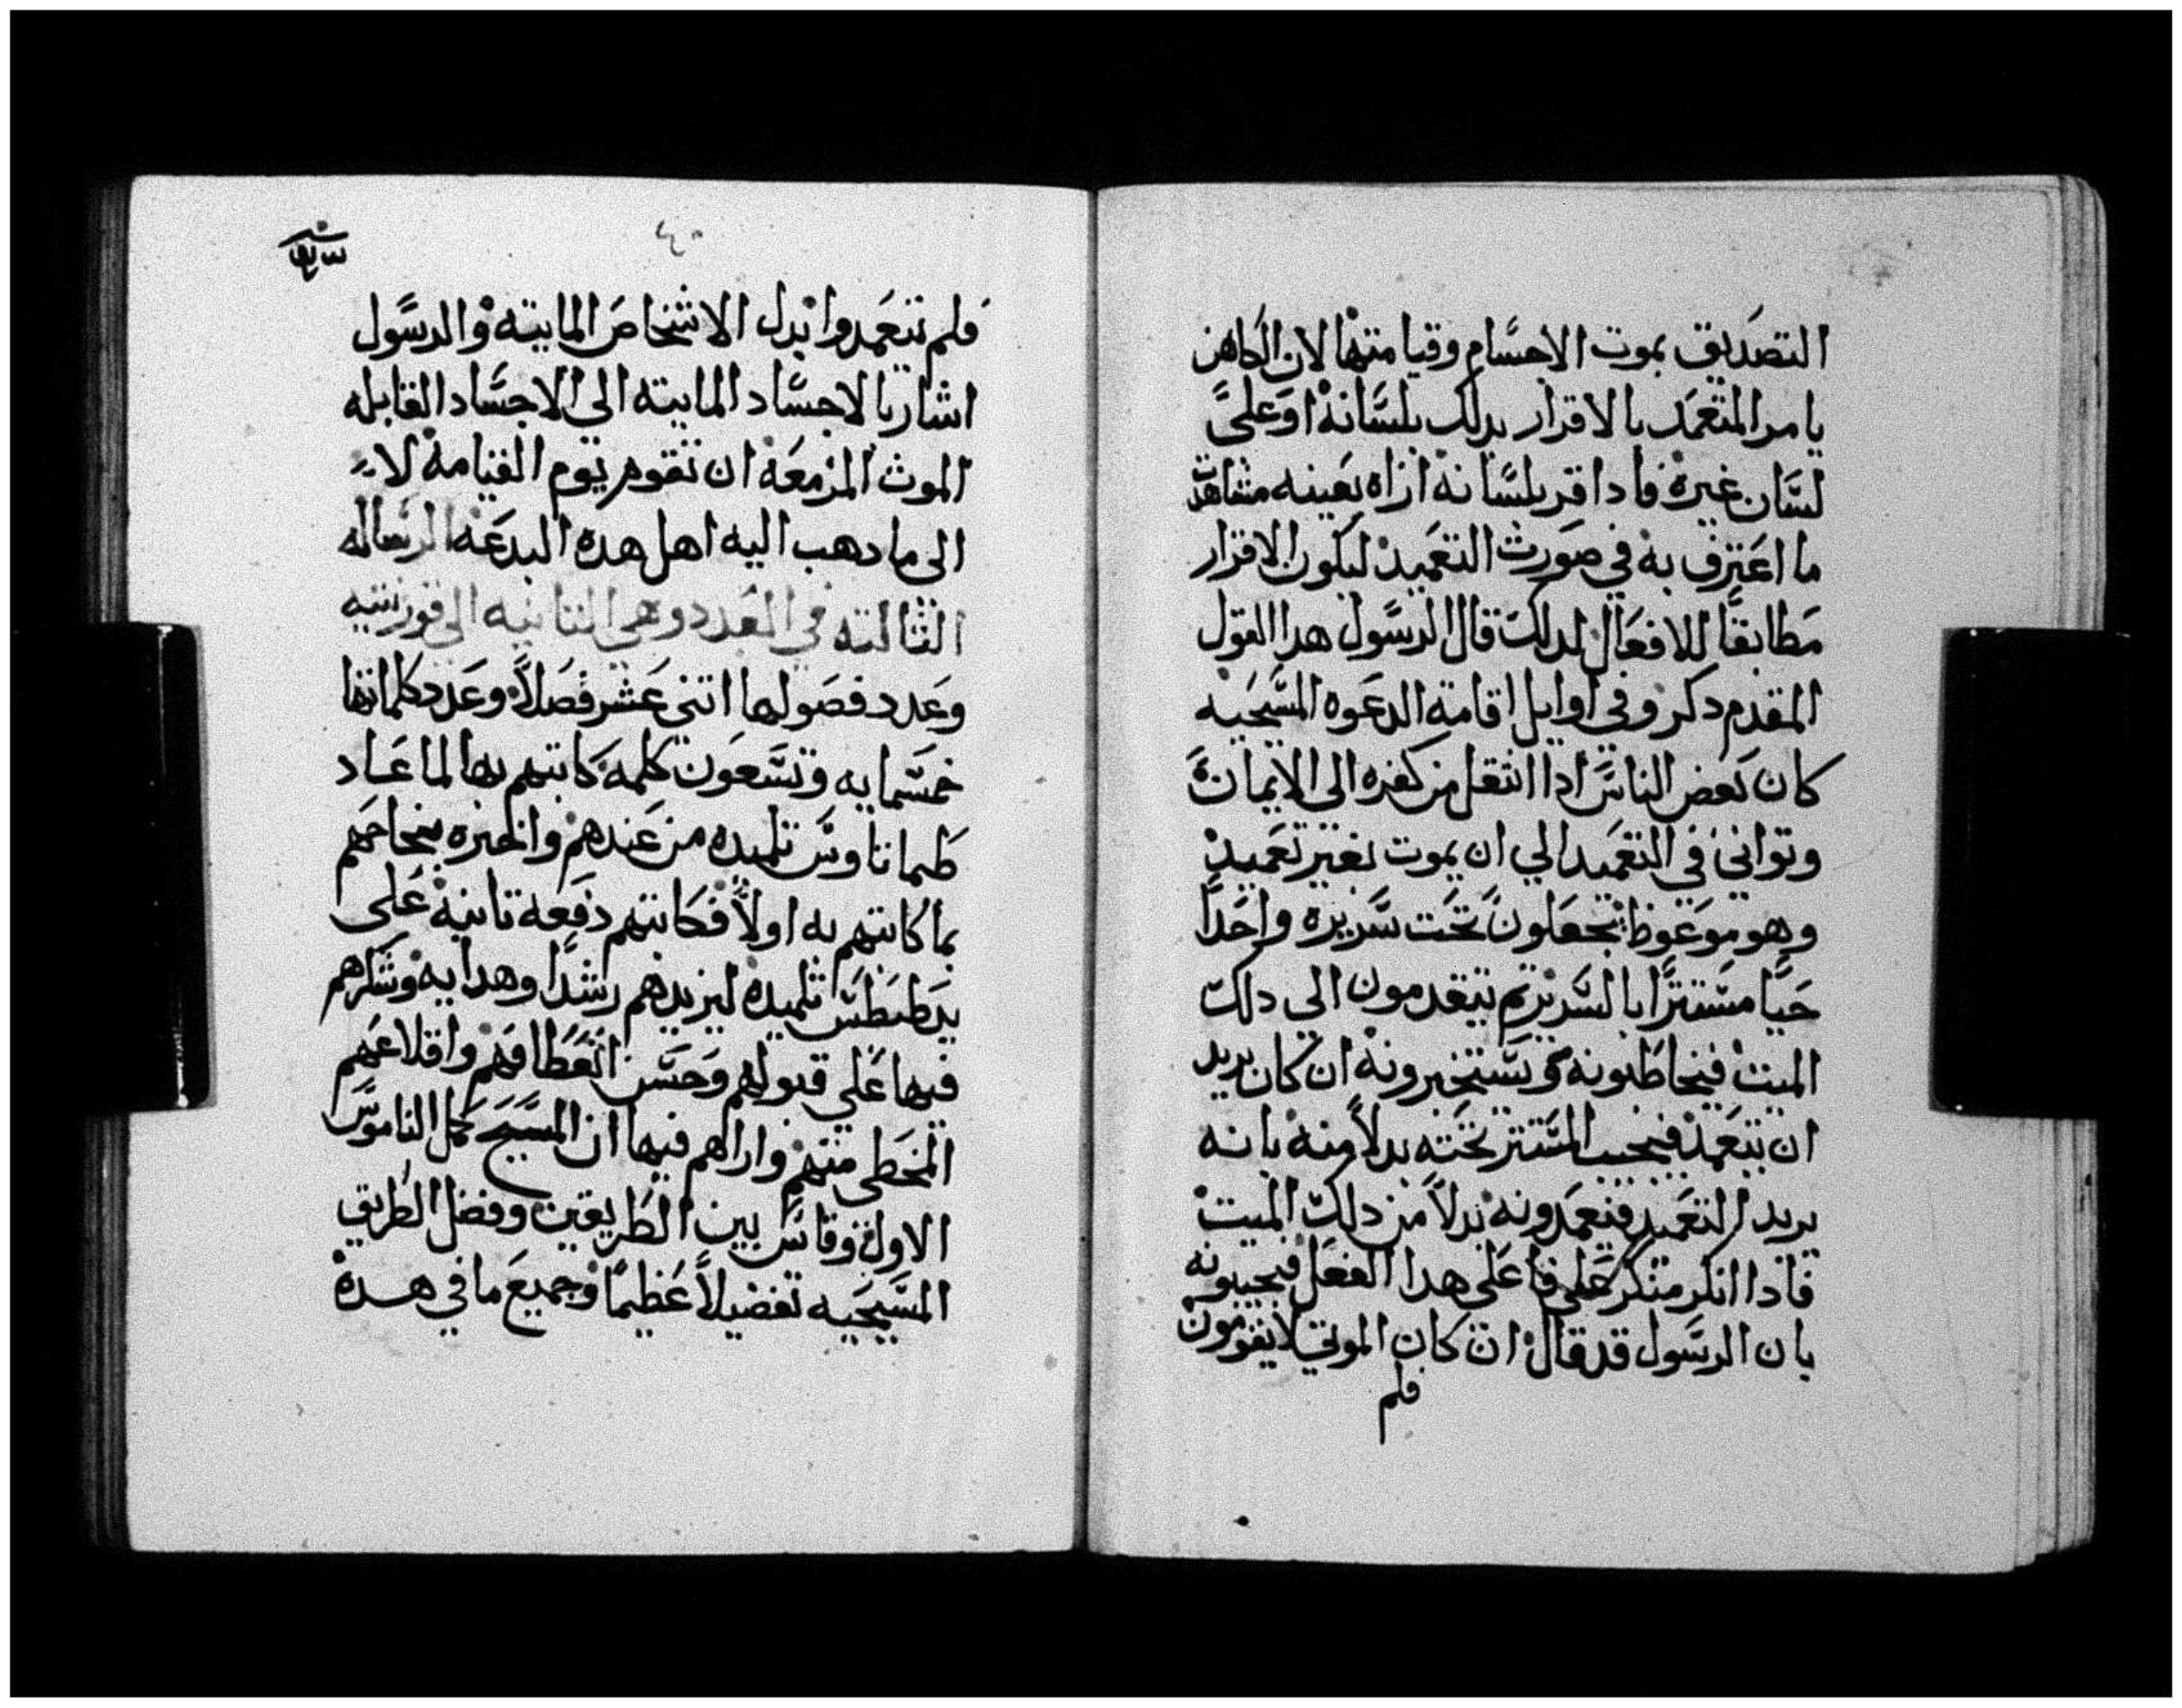 التصديق بموت الاجسام وقيامتها لان الكاهن
يامر المتعمد بالاقرار بدلك بلسانه او على
لسان غيره فادا اقر بلسانه اراه بعينه مشاهدة
ما اعترف به في صورت التعميد ليكون الاقرار
مطابقا للافعال لدلك قال الرسول هدا القول
المقدم دكره وفي اوايل اقامة الدعوه المسيحيه
كان بعض الناس ادا انتقل من كفره الى الايمان
وتوانى في التعميد الي ان يموت بغير تعميد
وهو موعوظ يجعلون تحت سريره واحدا
حيا مستترا بالسرير تم يتقدمون الى دلك
الميت فيخاطبونه ويستخبرونه ان كان يريد
ان يتعمد فيجيب المستتر تحته بدلا منه بانه
يريد التعميد فيعمدونه بدلا من دلك الميت
فادا انكر منكر علي فاعلي هدا الفعل فيجيبونه
بان الرسول قد قال ان كان الموتي لا يقومون
فلم
٤٠
فلم يتعمدوا بدل الاشخاص المايته والرسول
اشار بالاجساد المايته الى الاجساد القابله
الموت المزمعة ان تقوم يوم القيامة لا
الى ما دهب اليه اهل هده البدعة الرساله
الثالته في العدد وهي التانيه الى قورنتيه
وعدد فصولها اتنى عشر فصلا وعدد كلماتها
خمسمايه وتسعون كلمه كاتبهم بها لما عاد
طيماتاوس تلميده من عندهم واخبره بنجاحهم
بما كاتبهم به اولا فكاتبهم دفعة تانية على
يد طيطس تلميده ليزيدهم رشدا وهدايه وشكرهم
فيها على قبولهم وحسن انعطافهم واقلاعهم
المخطى منهم واراهم فيها ان المسيح كمل الناموس
الاول وقاس بين الطريقين وفضل الطريق
المسيحيه تفضيلا عظيما وجميع ما في هده